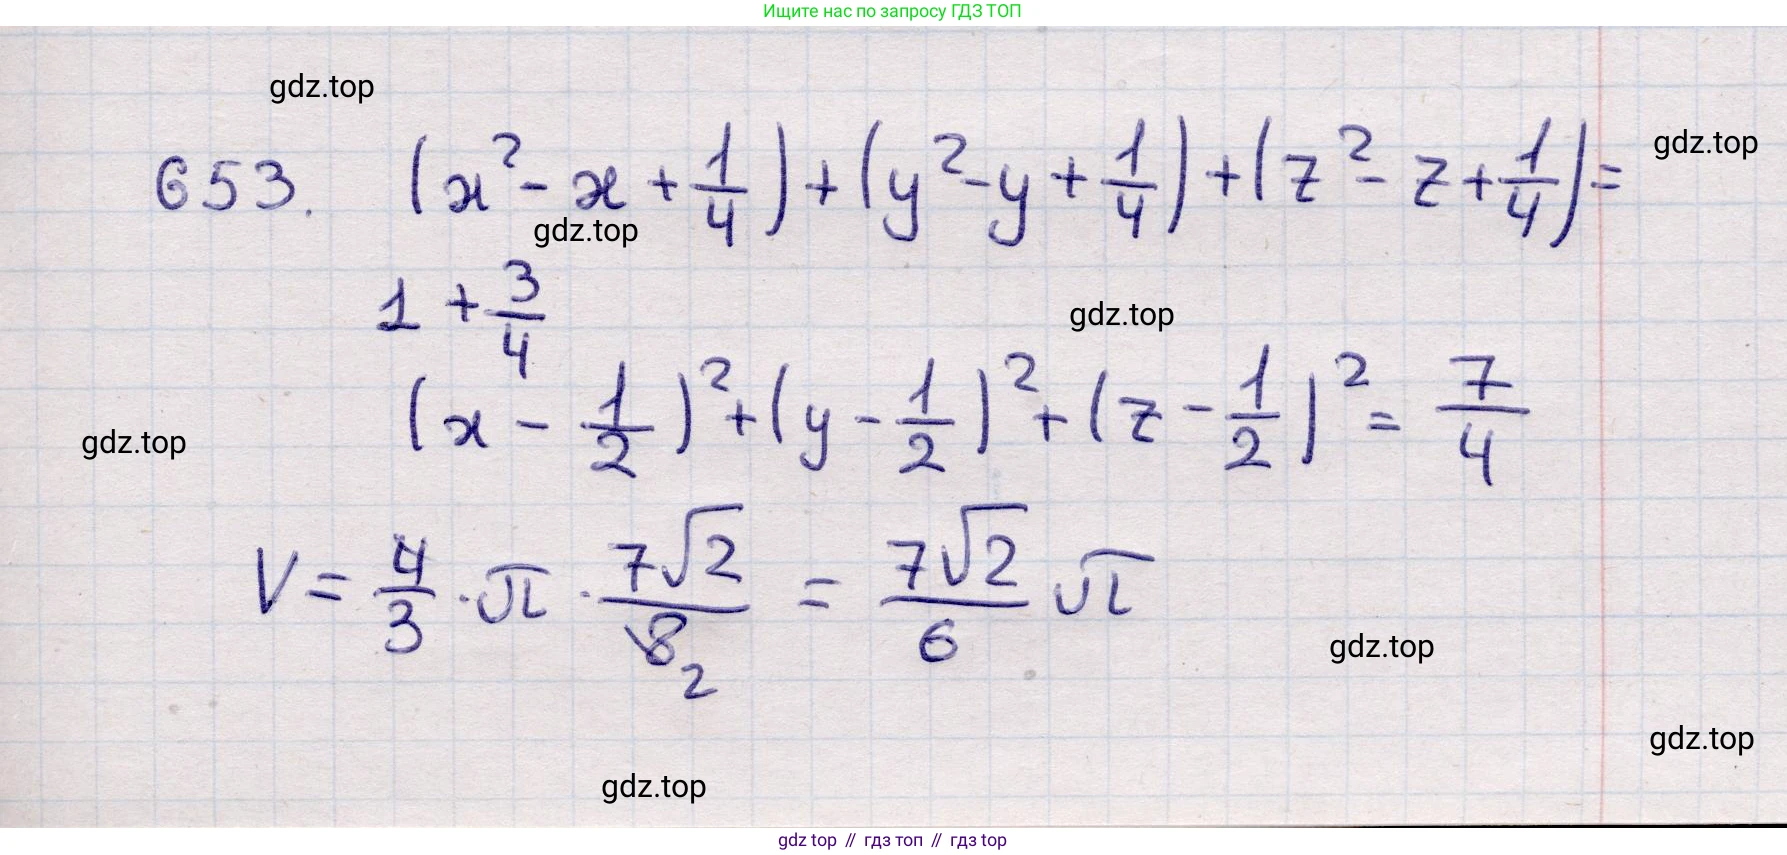 Ищите нас по запросу ГДЗ ТОП
gdz.top
653. (x² - x + 1/4) + (y² - y + 1/4) + (z² - z + 1/4) =
gdz.top
gdz.top
1 + 3/4
gdz.top
(x - 1/2)² + (y - 1/2)² + (z - 1/2)² = 7/4
gdz.top
V = 4/3 · π · 7√2/8 2 = 7√2/6 π
gdz.top
gdz.top
gdz.top
gdz top // гдз топ // gdz top